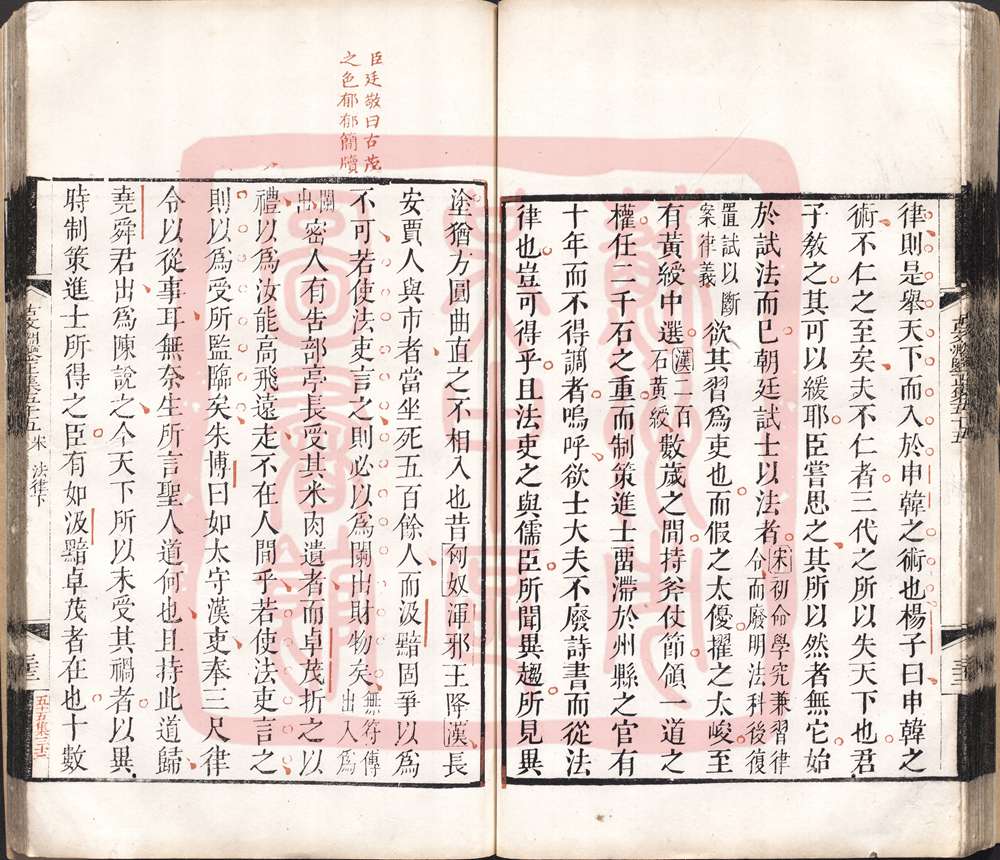 律則是舉天下而入於申韓之術也楊子曰申韓之
術不仁之至矣夫不仁者三代之所以失天下也君
子教之其可以緩耶臣嘗思之其所以然者無它始
於試法而已朝廷試士以法者宋初命學究兼習律令而廢明法科後復
置試以斷案律義欲其習為吏也而假之太優擢之太峻至
有黃綬中選漢二百石黃綬數歲之間持斧仗節領一道之
權任二千石之重而制策進士畱滯於州縣之官有
十年而不得調者嗚呼欲士大夫不廢詩書而從法
律也豈可得乎且法吏之與儒臣所聞異趨所見異
臣廷敬曰古茂
之色郁郁簡牘
塗猶方圓曲直之不相入也昔匈奴渾邪王降漢長
安賈人與市者當坐死五百餘人而汲黯固爭以為
不可若使法吏言之則必以為闌出財物矣無符傳出入為
闌出密人有告部亭長受其米肉遺者而卓茂折之以
禮以為汝能高飛遠走不在人間乎若使法吏言之
則以為受所監臨矣朱博曰如太守漢吏奉三尺律
令以從事耳無奈生所言聖人道何也且持此道歸
堯舜君出為陳說之今天下所以未受其禍者以異
時制策進士所得之臣有如汲黯卓茂者在也十數
宋 法律下